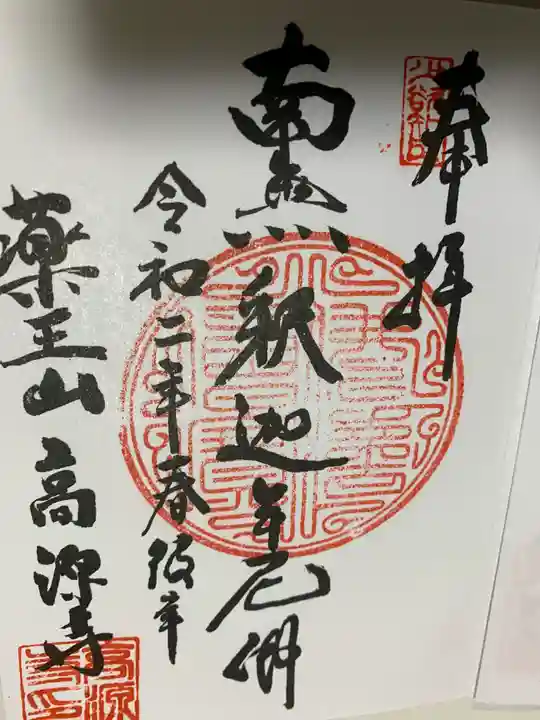 奉拝
南無釈迦牟尼佛
令和二年春彼岸
薬王山高源寺
高源寺印